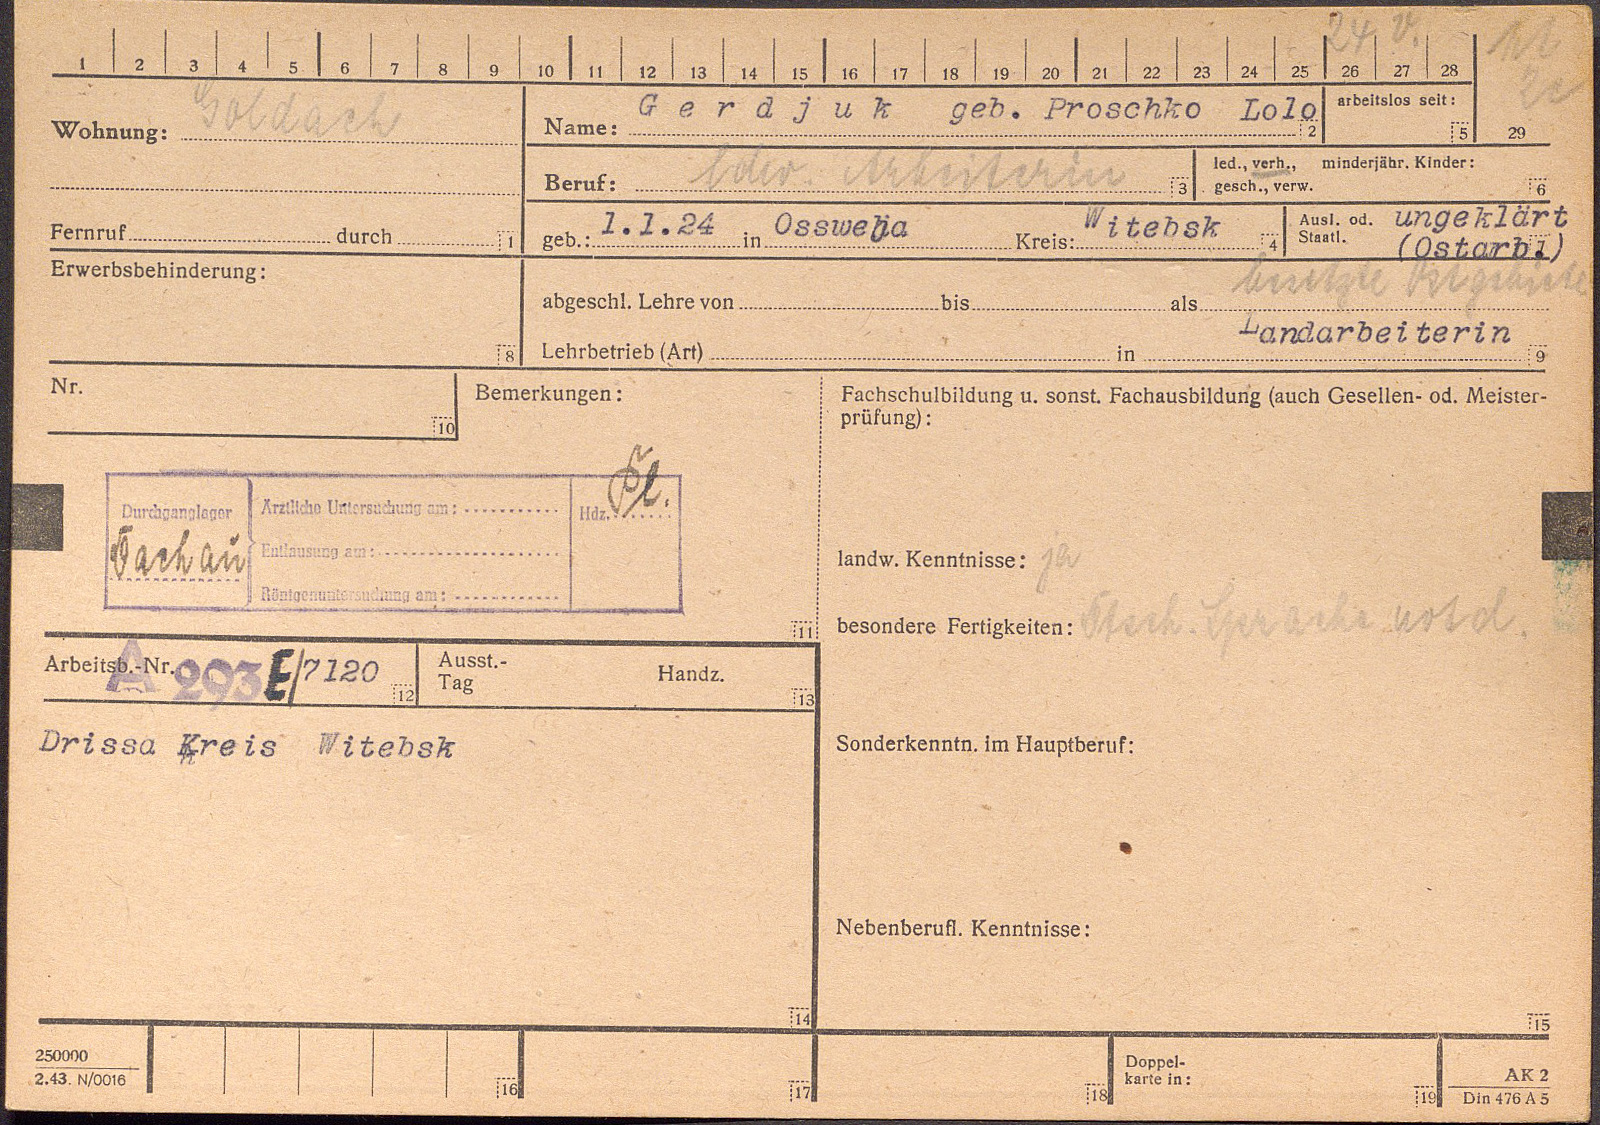 24 V.
1 2 3 4 5 6 7 8 9 10 11 12 13 14 15 16 17 18 19 20 21 22 23 24 25 26 27 28
Wohnung: Goldach
Name: Gerdjuk geb. Proschko Lolo 2
arbeitslos seit: 5
29
Beruf: ldw. Arbeiterin 3
led., verh., minderjähr. Kinder:
gesch., verw. 6
Fernruf durch 1
geb.: 1.1.24 in Ossweja Kreis: Witebsk 4
Ausl. od. Staatl. ungeklärt
(Ostarb.)
besetzte Ostgebiete
Erwerbsbehinderung: 8
abgeschl. Lehre von bis als
Landarbeiterin
Lehrbetrieb (Art) in 9
Nr. 10
Bemerkungen:
Durchganglager
Dachau
Ärztliche Untersuchung am:
Entlausung am:
Röntgenuntersuchung am:
Hdz.
11
Fachschulbildung u. sonst. Fachausbildung (auch Gesellen- od. Meister-
prüfung):
landw. Kenntnisse: ja
besondere Fertigkeiten: Dtsch. Sprache notd.
Arbeitsb.-Nr. A 293 E/7120 12
Ausst.-
Tag
Handz. 13
Drissa Kreis Witebsk
Sonderkenntn. im Hauptberuf:
Nebenberufl. Kenntnisse:
14
15
250000
2.43. N/0016
16
17
18
Doppel-
karte in:
19
AK 2
Din 476 A 5